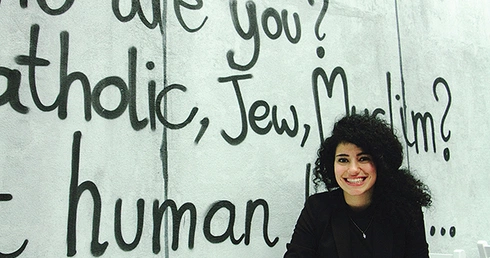 are you?
Catholic, Jew, Muslim?
human ...